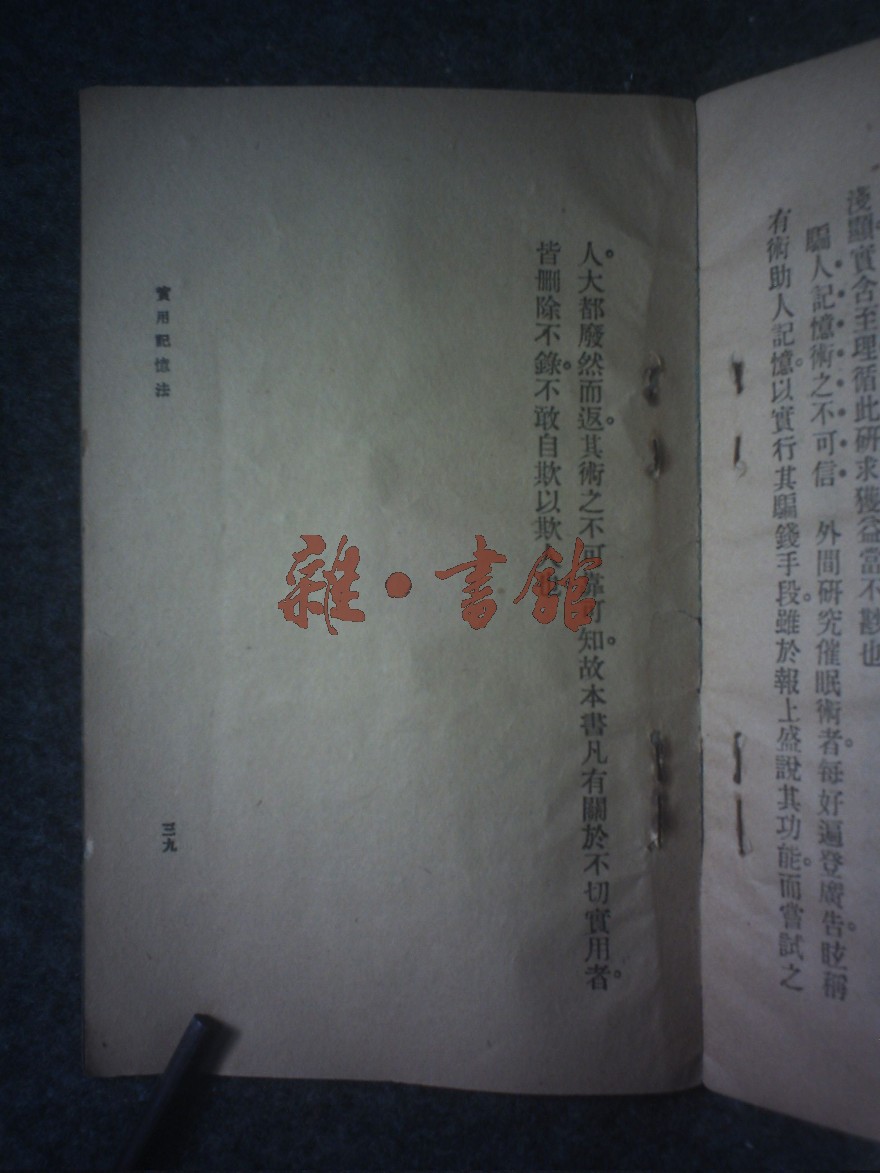 淺顯。實含至理循此研求獲益當不尠也
騙人記憶術之不可信　外間研究催眠術者。每好遍登廣告。眩稱
有術助人記憶。以實行其騙錢手段。雖於報上盛說其功能。而嘗試之
人。大都廢然而返。其術之不可靠可知。故本書凡有關於不切實用者。
皆刪除不錄。不敢自欺以欺人也
實用記憶法
三九
雜·書館